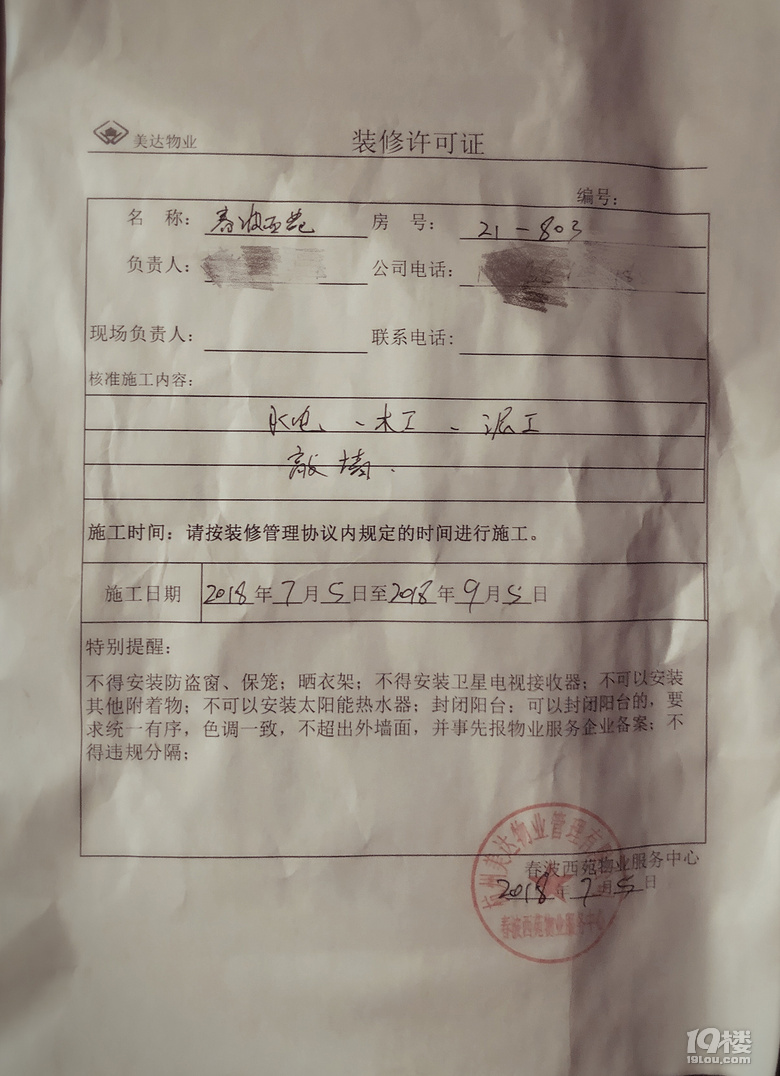 美达物业 装修许可证
编号:
名 称: 春波西苑 房 号: 21-803
负责人: 公司电话:
现场负责人: 联系电话:
核准施工内容:
水电、木工、泥工
敲墙.
施工时间:请按装修管理协议内规定的时间进行施工。
施工日期 2018年7月5日至2018年9月5日
特别提醒:
不得安装防盗窗、保笼;晒衣架;不得安装卫星电视接收器;不可以安装
其他附着物;不可以安装太阳能热水器;封闭阳台:可以封闭阳台的,要
求统一有序,色调一致,不超出外墙面,并事先报物业服务企业备案;不
得违规分隔;
杭州美达物业管理有
春波西苑物业服务中心
2018年7月5日
春波西苑物业服务中心
19楼
19lou.com